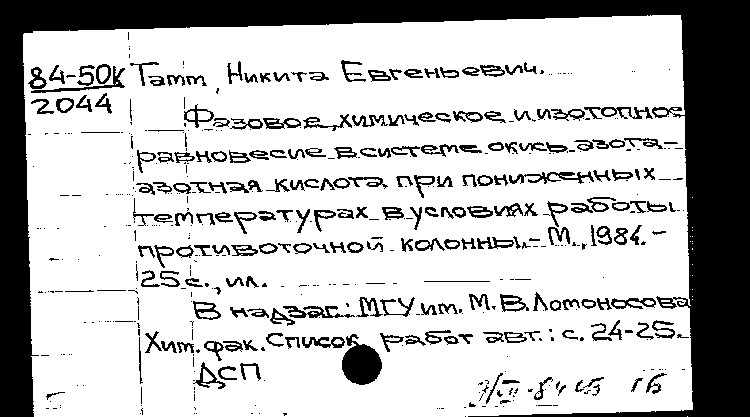 84-50к Татт, Никита Евгеньевич.
2044
Фазовое, химическое и изотопное
равновесие в системе окись азота-
азотная кислота при пониженных
температурах в условиях работы
противоточной колонны.- М., 1984.-
25 с., ил.
В надзаг.: МГУ им. М.В.Ломоносова
Хим. фак. Список работ авт.: с. 24-25.
ДСП